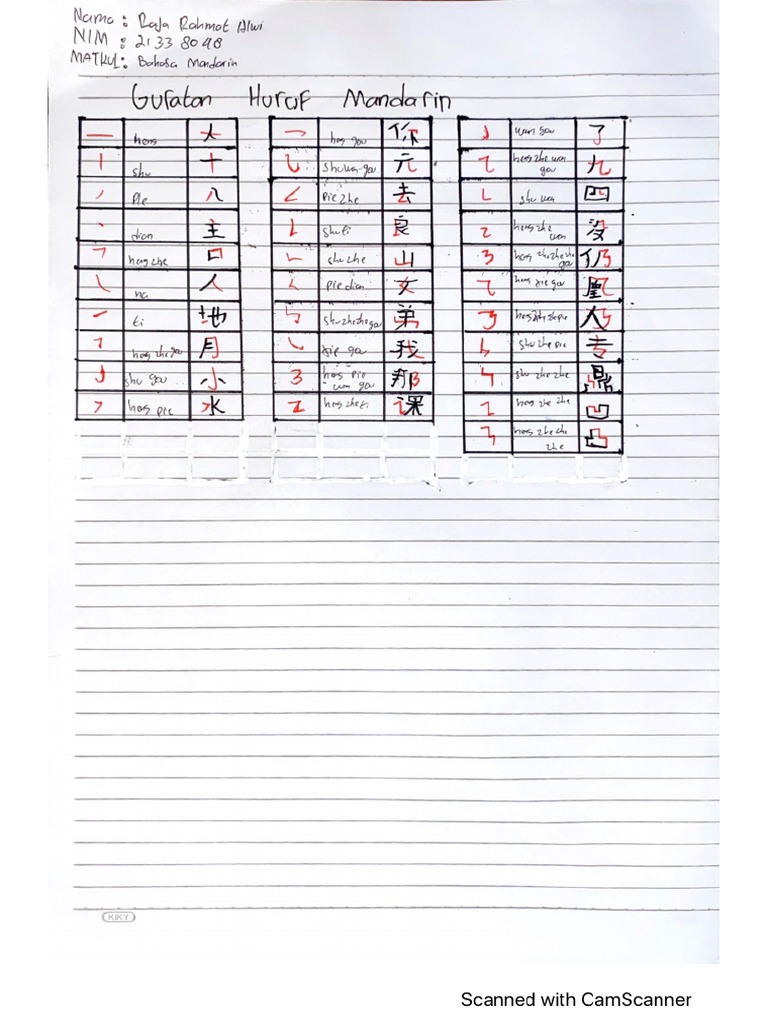 Nama : Raja Rahmat Alwi
NIM : 21338048
MATKUL : Bahasa Mandarin
Guratan Huruf Mandarin
一 heng 大
丨 shu 十
丿 Pie 八
丶 dian 主
𠃍 heng zhe 口
㇏ na 人
㇀ ti 地
𠃌 heng zhe gou 月
亅 shu gou 小
㇇ heng pie 水
乛 heng gou 你
乚 shu wan gou 元
𠃋 Pie zhe 去
𠄌 shu ti 良
𠃊 shu zhe 山
𡿨 Pie dian 女
㇉ shu zhe zhe gou 弟
㇂ xie gou 我
㇌ heng pie wan gou 那
㇊ heng zhe ti 课
wan gou 了
㇈ heng zhe wan gou 九
㇄ shu wan 四
㇍ heng zhe wan 没
㇡ heng zhe zhe zhe gou 仍
⺄ heng xie gou 凰
㇋ heng zhe zhe pie 及
ㄣ shu zhe pie 专
㇞ shu zhe zhe 鼎
㇅ heng zhe zhe 凹
㇎ heng zhe zhe zhe 凸
KIKY
Scanned with CamScanner